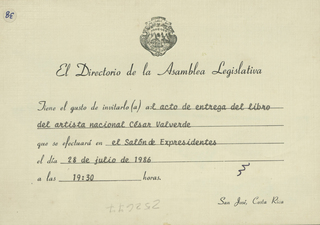 El Directorio de la Asamblea Legislativa
Tiene el gusto de invitarlo (a) al acto de entrega del libro
del artista nacional César Valverde
que se efectuará en el Salón de Expresidentes
el día 28 de julio de 1986
a las 19:30 horas.
San José, Costa Rica